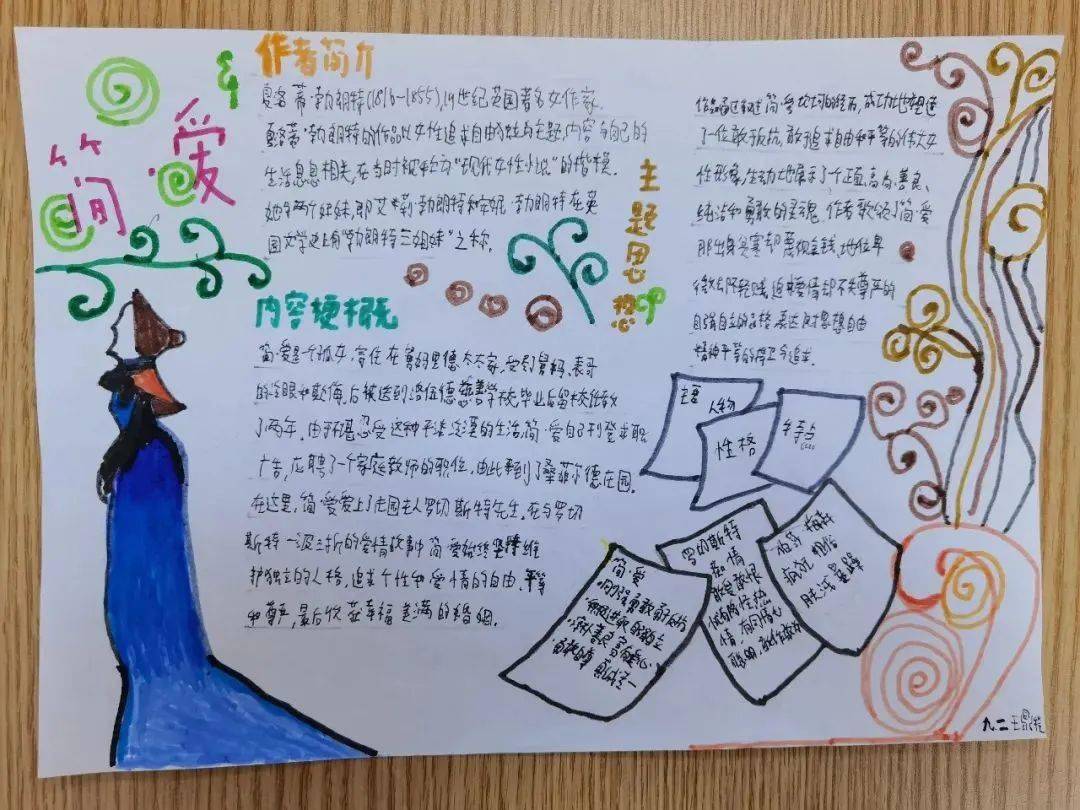 简·爱
作者简介
夏洛蒂·勃朗特(1816~1855),19世纪英国著名女作家.
夏洛蒂·勃朗特的作品以女性追求自由为主题,内容与自己的
生活息息相关,在当时被称为“现代女性小说”的楷模.
她的两个妹妹,即艾米莉·勃朗特和安妮·勃朗特在英
国文学史上有“勃朗特三姐妹”之称.
内容梗概
简·爱是个孤女,寄住在舅妈里德太太家,受到舅妈、表哥
的冷眼和欺侮,后被送到洛伍德慈善学校,毕业后留校任教
了两年.由于不堪忍受这种平淡的生活,简·爱自己刊登求职
广告,应聘了一个家庭教师的职位,由此来到了桑菲尔德庄园.
在这里,简·爱爱上了庄园主人罗切斯特先生.在与罗切
斯特一波三折的爱情故事中,简·爱始终坚持维
护独立的人格,追求个性和爱情的自由、平等
和尊严,最后收获幸福美满的婚姻.
主题思想
作品通过叙述简·爱坎坷的经历,成功地塑造
了一位敢于反抗,敢于追求自由和平等的伟大女
性形象,生动地展示了一个正直、高尚、善良、
纯洁和勇敢的灵魂.作者歌颂了简·爱
那出身贫寒却蔑视金钱、地位卑
微却不轻贱、追求爱情却不失尊严的
自强自立的品格,表达对思想自由
精神平等的捍卫与追求.
主要人物
性格
简·爱
罗切斯特
九二 王